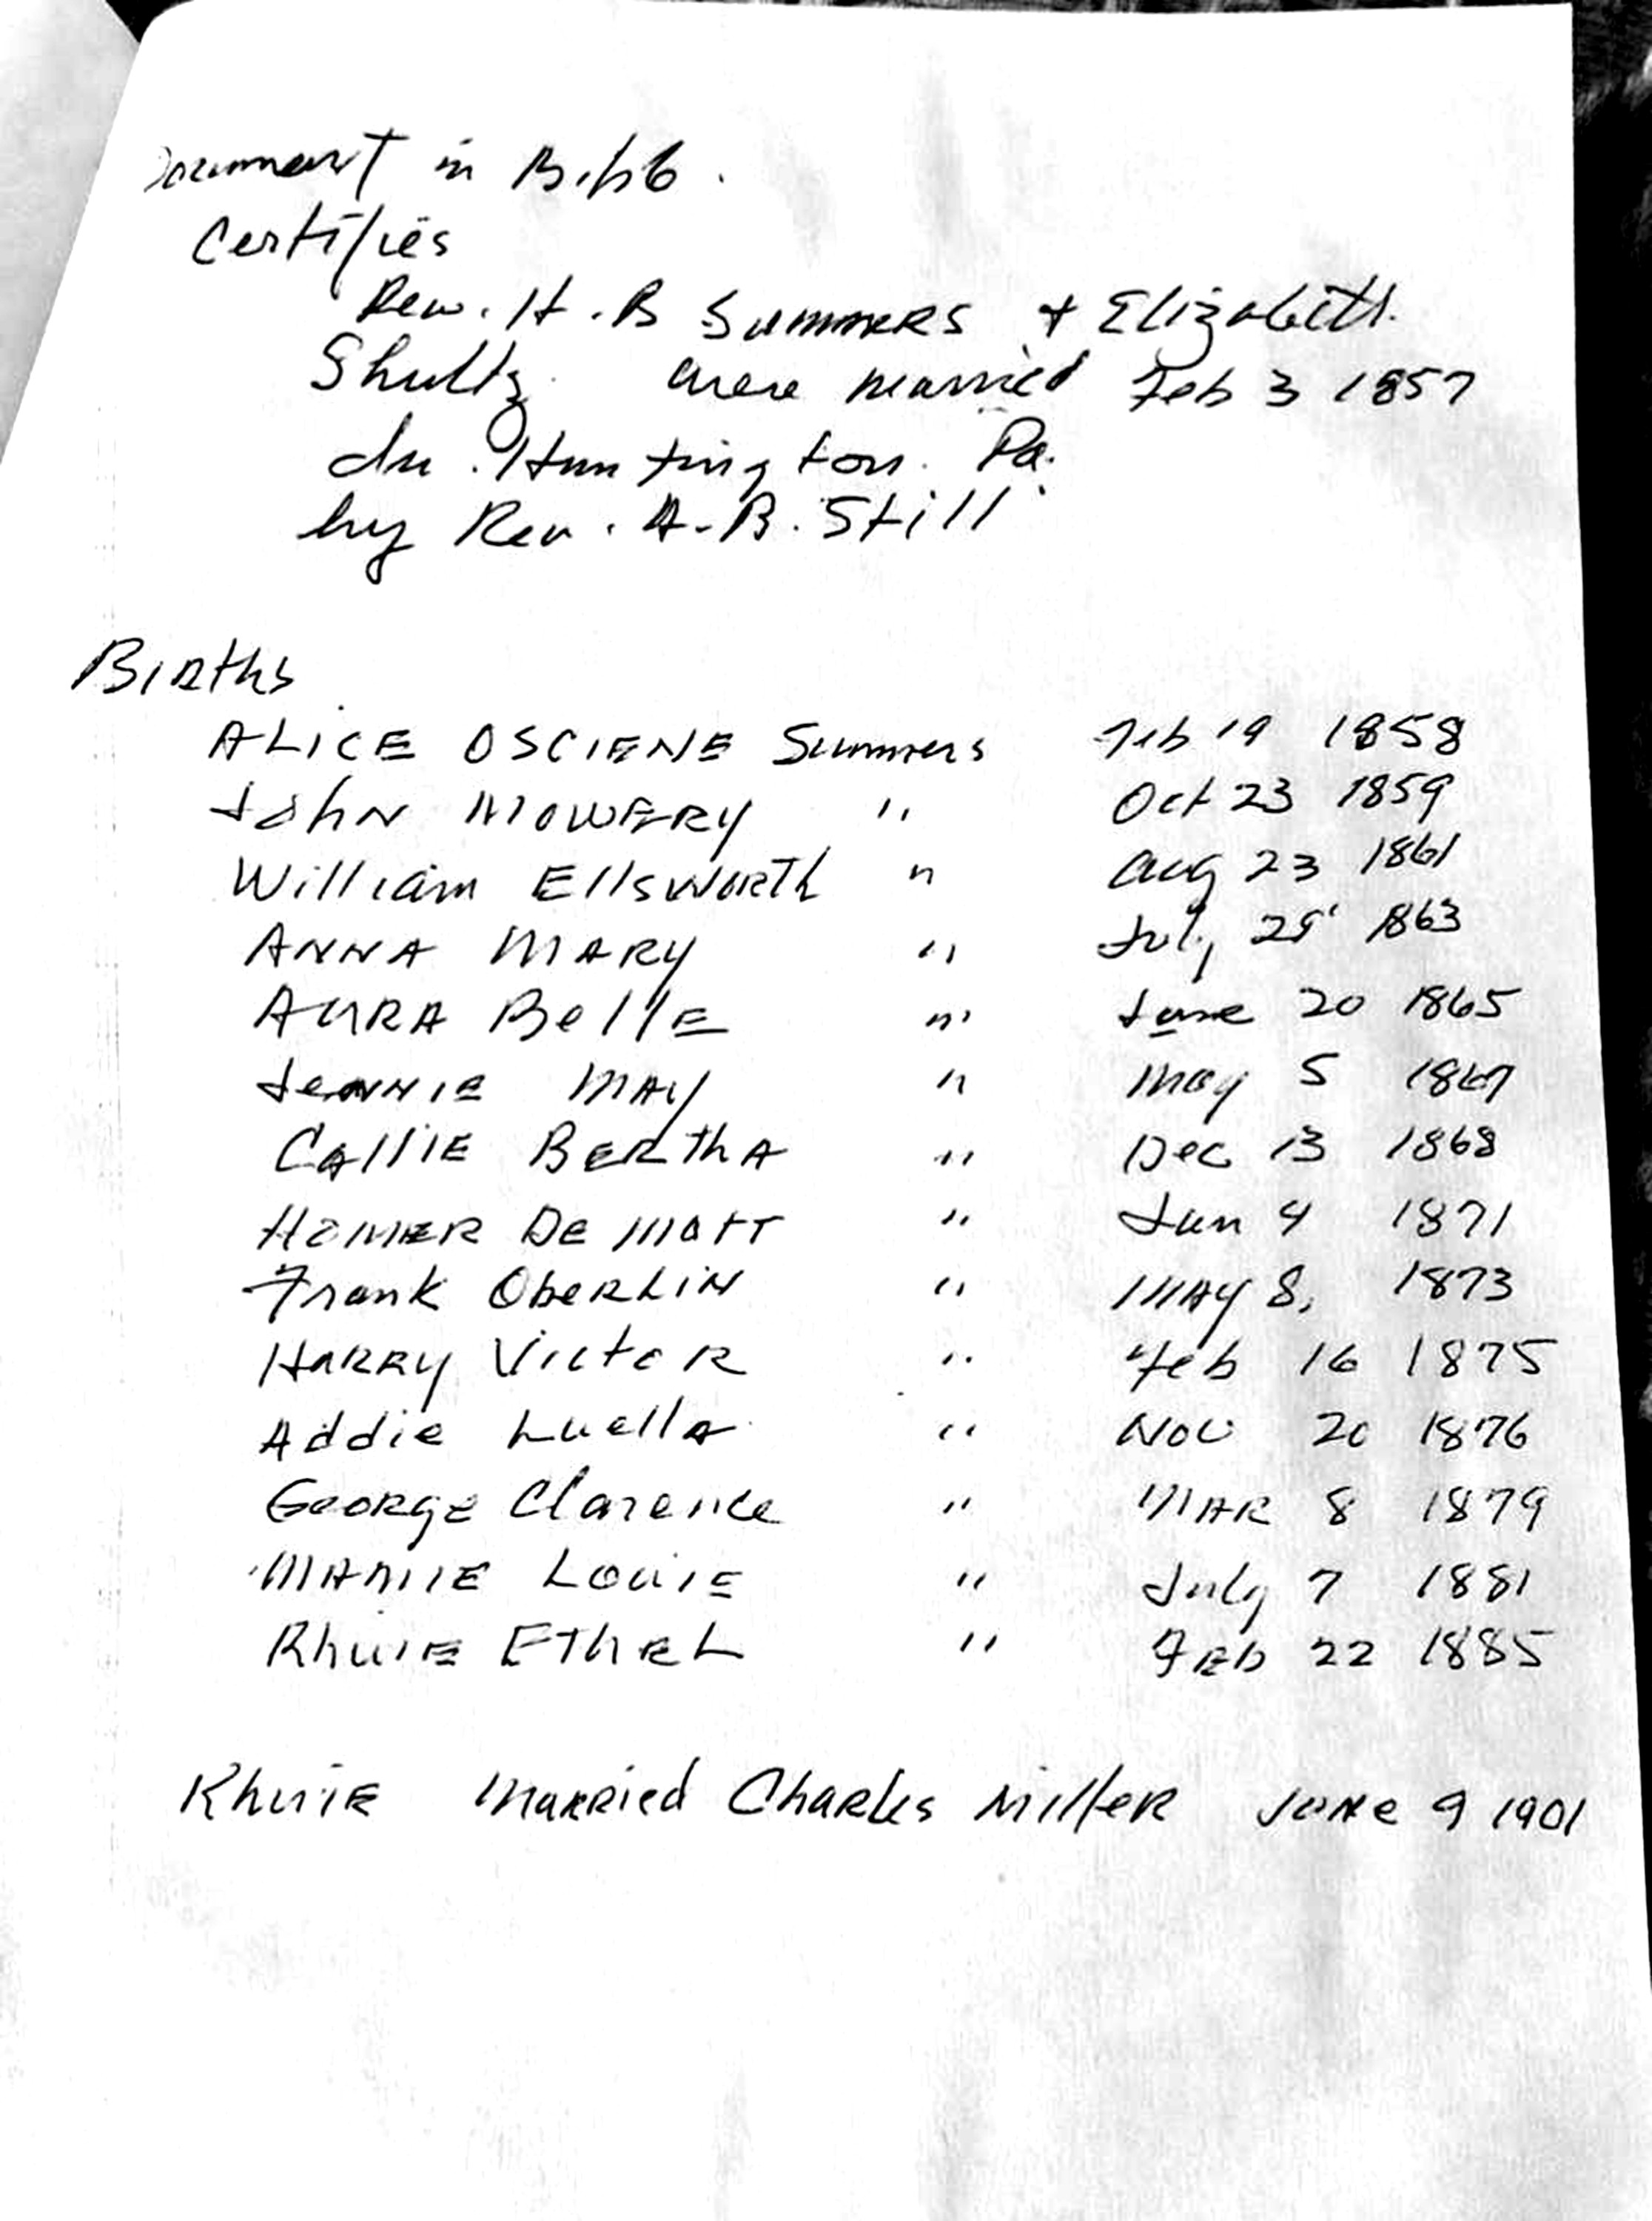 Document in Bible.
Certifies
Rev. H. B Summers + Elizabeth
Shultz were married Feb 3 1857
In Huntington Pa.
by Rev. A. B. Still
Births
ALICE OSCIENE Summers Feb 19 1858
John MOWERY " Oct 23 1859
William EllsWORTh " Aug 23 1861
ANNA MARY " July 1863
AURA BellE " June 20 1865
JeNNIE MAY " May 5 1867
CAllIE BERThA " Dec 13 1868
HOMER DE MOTT " Jan 4 1871
Frank OberLiN " MAY 8, 1873
HARRY VictoR " Feb 16 1875
Addie Luella " Nov 20 1876
GeORgE Clarence " MAR 8 1879
MAMIE LouIE " July 7 1881
RhuiE EThEL " FEb 22 1885
RhuiE MARRied ChaRles MilleR JUNe 9 1901